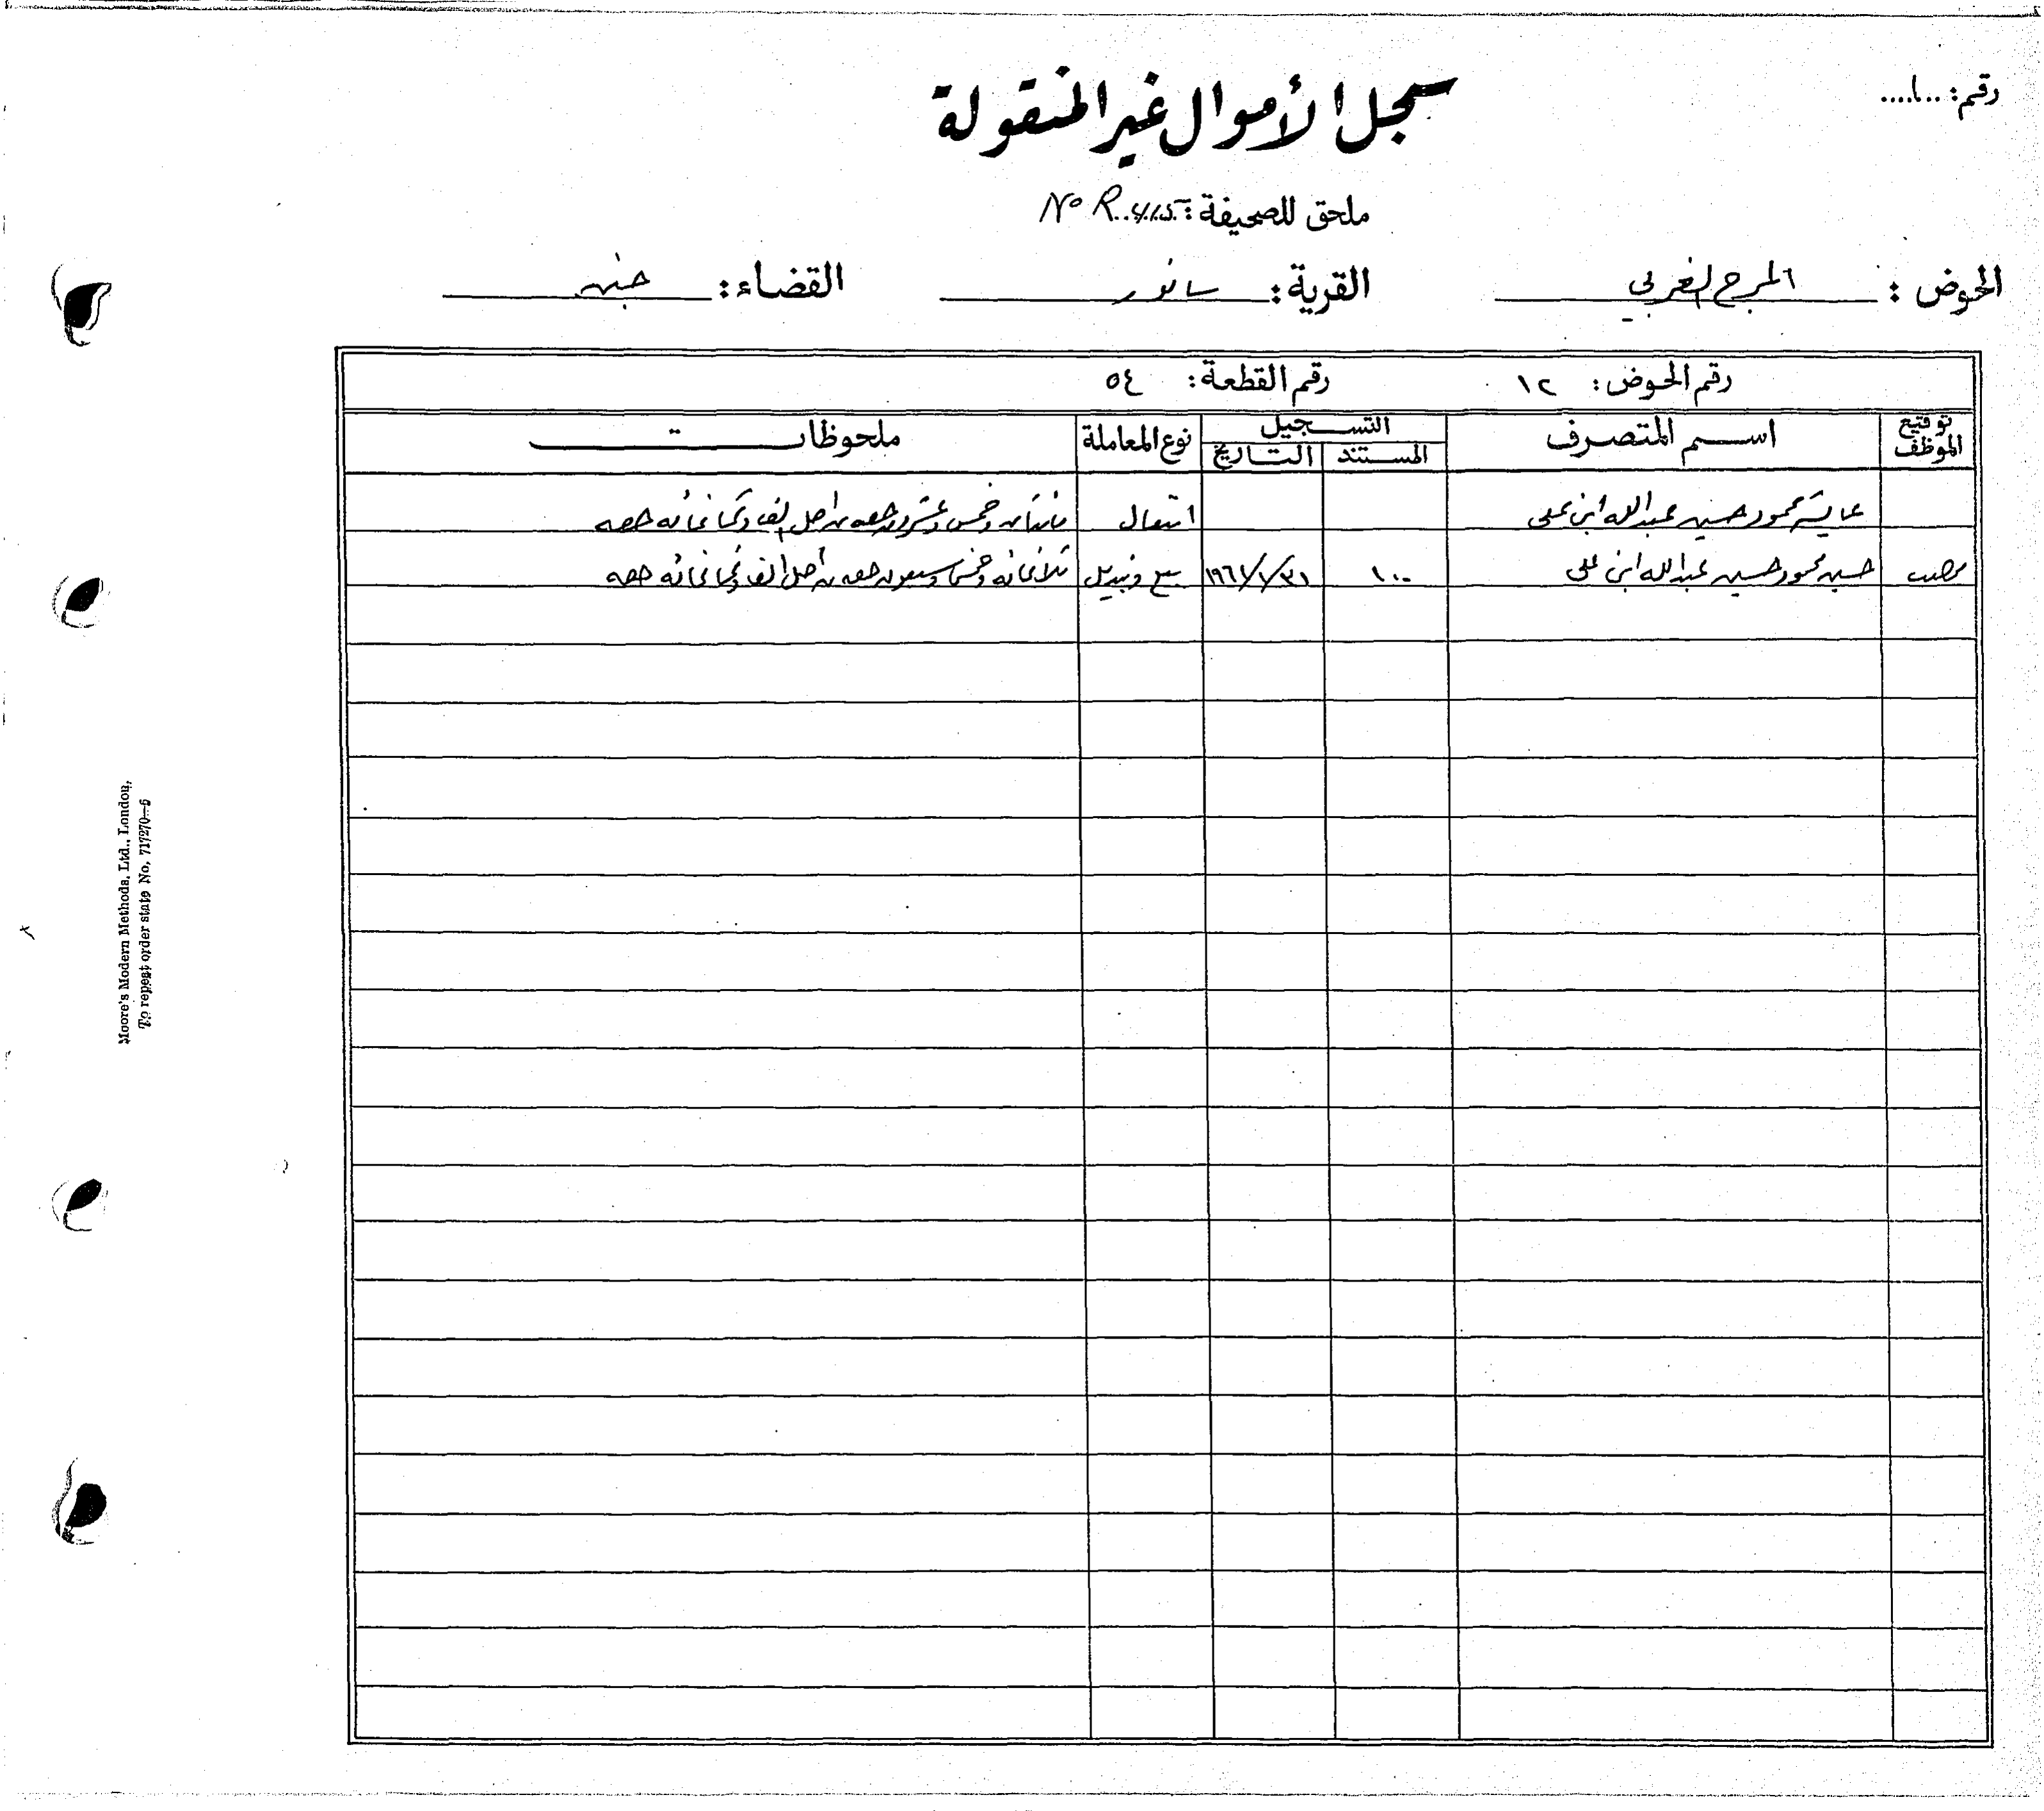 رقم: ..١....
سجل الأموال غير المنقولة
ملحق للصحيفة: No R.
الحوض: المرج الغربي القرية: سانور القضاء: جنين
رقم الحوض: ١٢ رقم القطعة: ٥٤
توقيع الموظف اسم المتصرف التسجيل نوع المعاملة ملحوظات
المستند التاريخ
عايشه محمود حسين عبدالله ابن علي انتقال مائتان وخمس وعشرون حصه من اصل الف وثمانمائه حصه
حسين محمود حسين عبدالله ابن علي ١٠٠ بيع وتبديل ثلاثمائه وخمس وسبعون حصه من اصل الف وثمانمائه حصه
Moore's Modern Methods, Ltd., London,
To repeat order state No. 717270—5